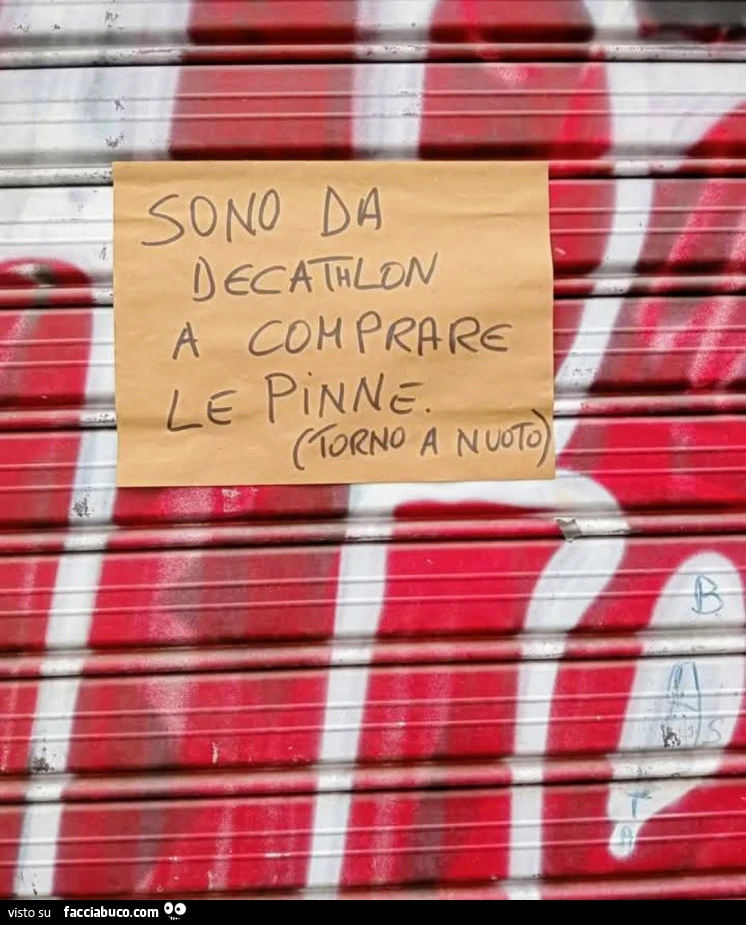 SONO DA
DECATHLON
A COMPRARE
LE PINNE.
(TORNO A NUOTO)
B
A
S
T
A
visto su facciabuco.com